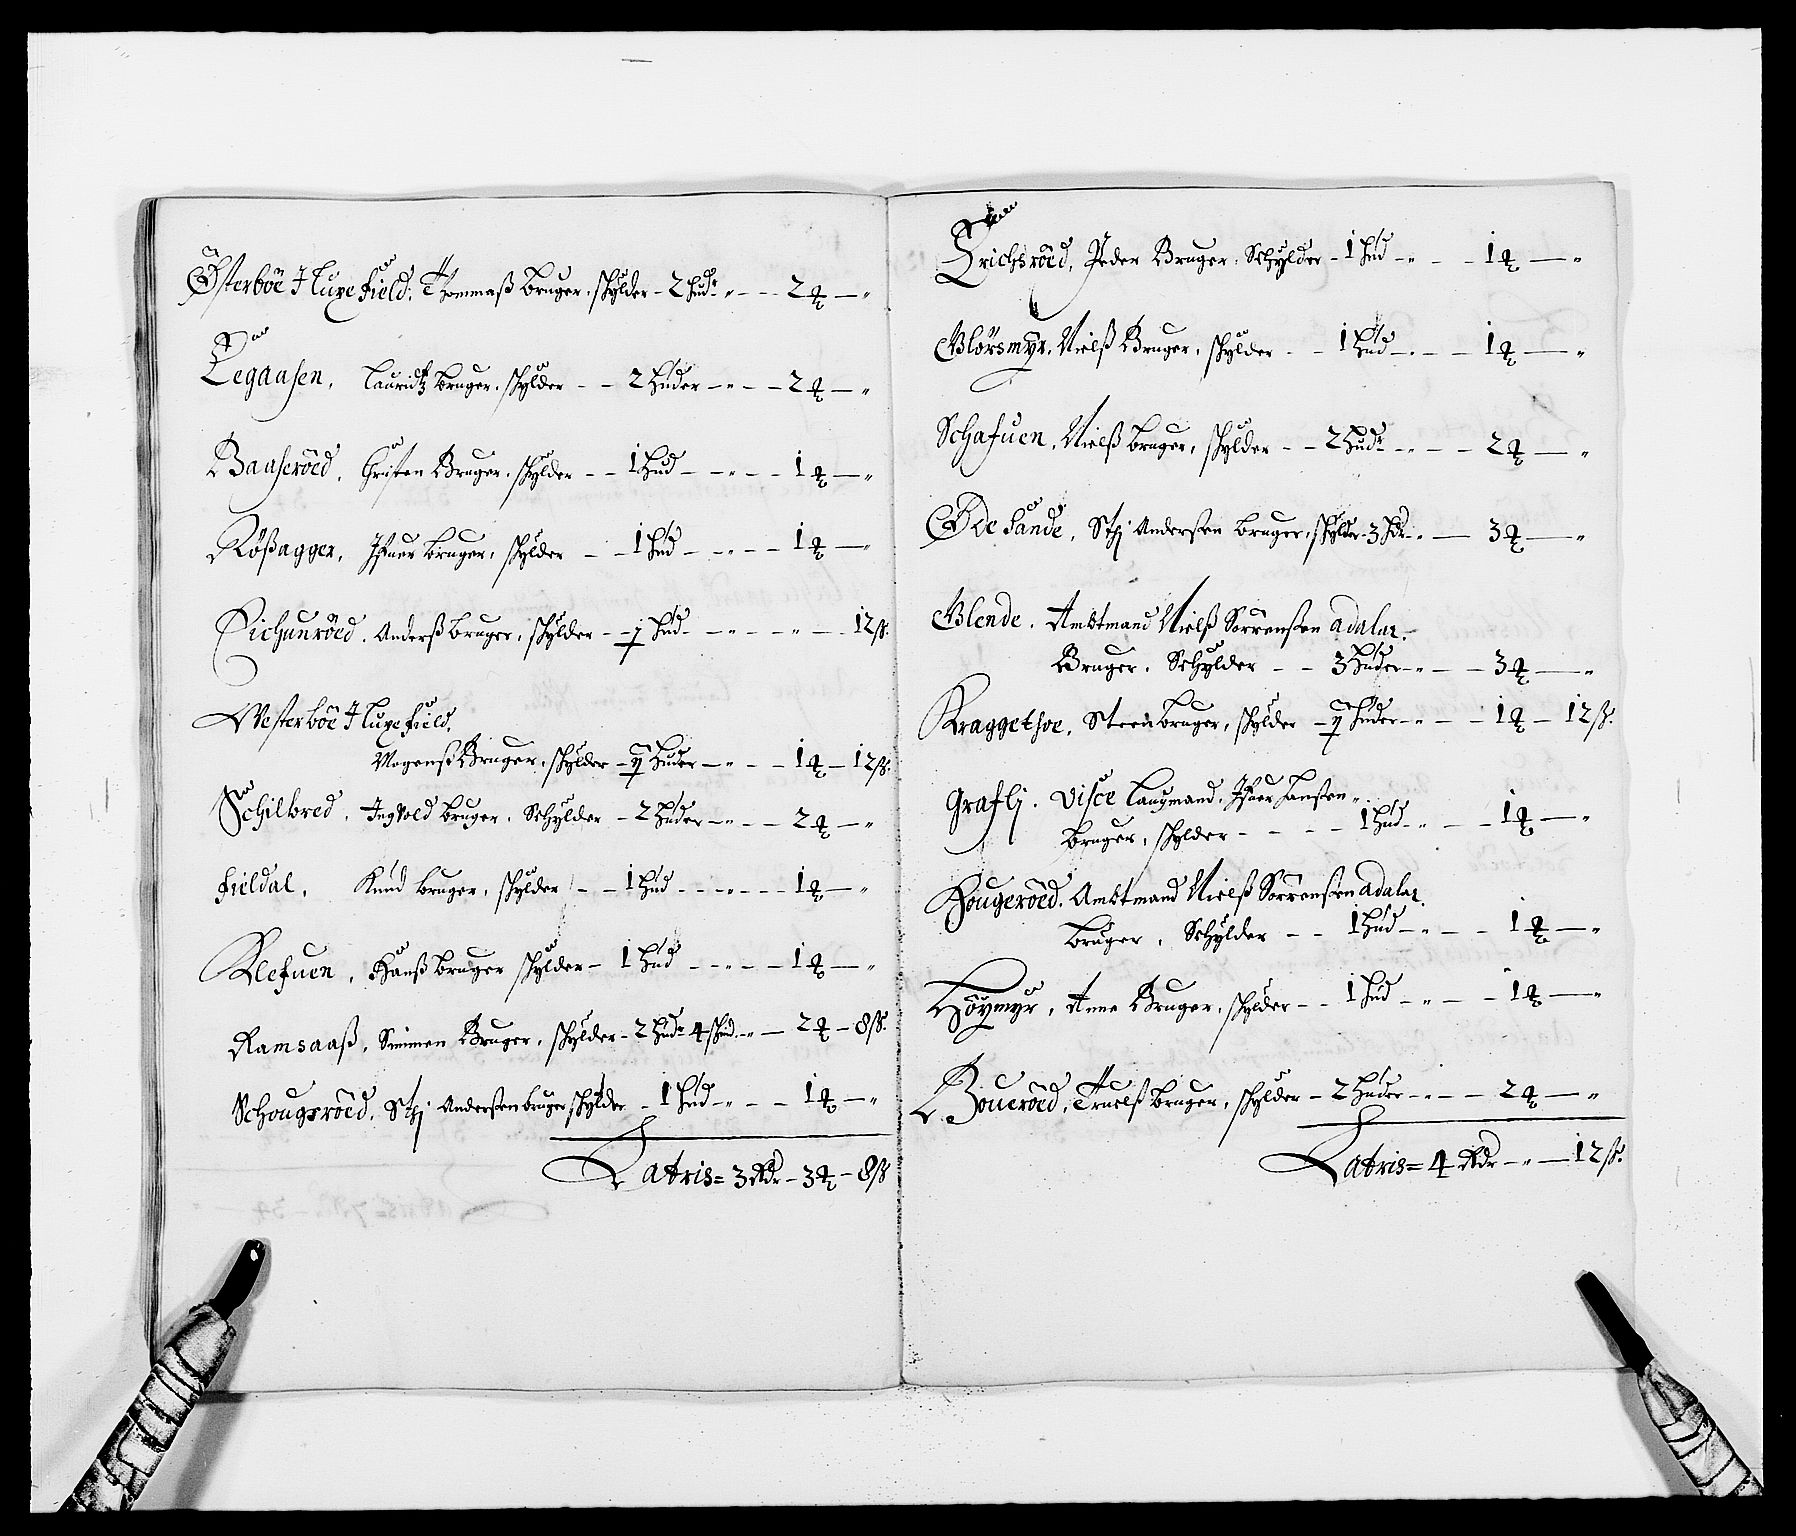 Österböe J Luxefield. Thommaß bruger, schylder - 2 hudr „ - - 2 ꝗ — „
Legaasen, Lauridtz bruger, schylder - - 2 huder - „ - - 2 ꝗ — „
Baaseröed, Gristen Bruger, schylder - - 1 Hud - - „ - - 1 ꝗ — „
Rößagger, Ifuer bruger, schylder - - 1 hud - - „ - - 1 ꝗ — „
Eichunröed, Anderß bruger, schylder - ½ hud - - „ - - „ - 12 ß.
Westerböe J Luxefield,
Mogenß Bruger, schylder - 1½ huder - „ - - 1 ꝗ - 12 ß.
Schilbred, Ingvold bruger, Schylder - 2 huder - „ - - 2 ꝗ — „
Fieldal, Knud bruger, schylder - - 1 hud - - „ - - 1 ꝗ — „
Klefuen, Hanß bruger schylder - 1 hud - - „ - - 1 ꝗ — „
Ramsaaß, Simmen Bruger, schylder - 2 hudr 4 schind - „ - 2 ꝗ - 8 ß.
Schougsröed, Sthj Anderßen bruger schylder - 1 hud - „ - - 1 ꝗ — „
Latris = 3 Rdr - 3 ꝗ - 8 ß
Erichsröed, Peder Bruger, Schylder - 1 hud - „ - - 1 ꝗ — „
Blörsmyr, Nielß Bruger, schylder - - 1 hud - „ - - 1 ꝗ — „
Schafuen, Nielß bruger, schylder - - 2 hudr - „ - - 2 ꝗ — „
Ode Sande, Sthj Anderßen bruger, schylder - 3 hdr - „ — 3 ꝗ — „
Blende, Ambtmand Nielß Sörrenßen adalar.
Bruger, Schylder - - 3 huder - „ - - 3 ꝗ — „
Kraggethoe, Steen bruger, schylder - 1½ huder - „ - - 1 ꝗ - 12 ß.
Graflj. Visce Laugmand, Ifuer Hanßen
bruger, schylder - - - - 1 hud - „ - - 1 ꝗ — „
Hougeröed. Ambtmand Nielß Sörrenßen adalar.
bruger, Schylder - - 1 hud - „ - - 1 ꝗ — „
Höymyr, Anne Bruger, schylder - - 1 hud - „ - - 1 ꝗ — „
Boueröed, Truelß bruger, schylder - 2 huder - „ - - 2 ꝗ — „
Latris = 4 Rdr - „ — 12 ß.